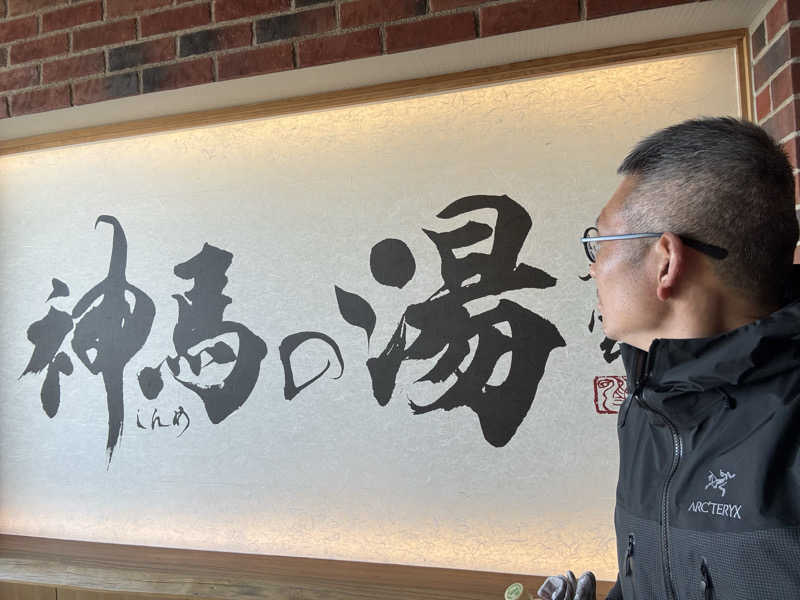 神馬の湯
しんめ
ARC'TERYX